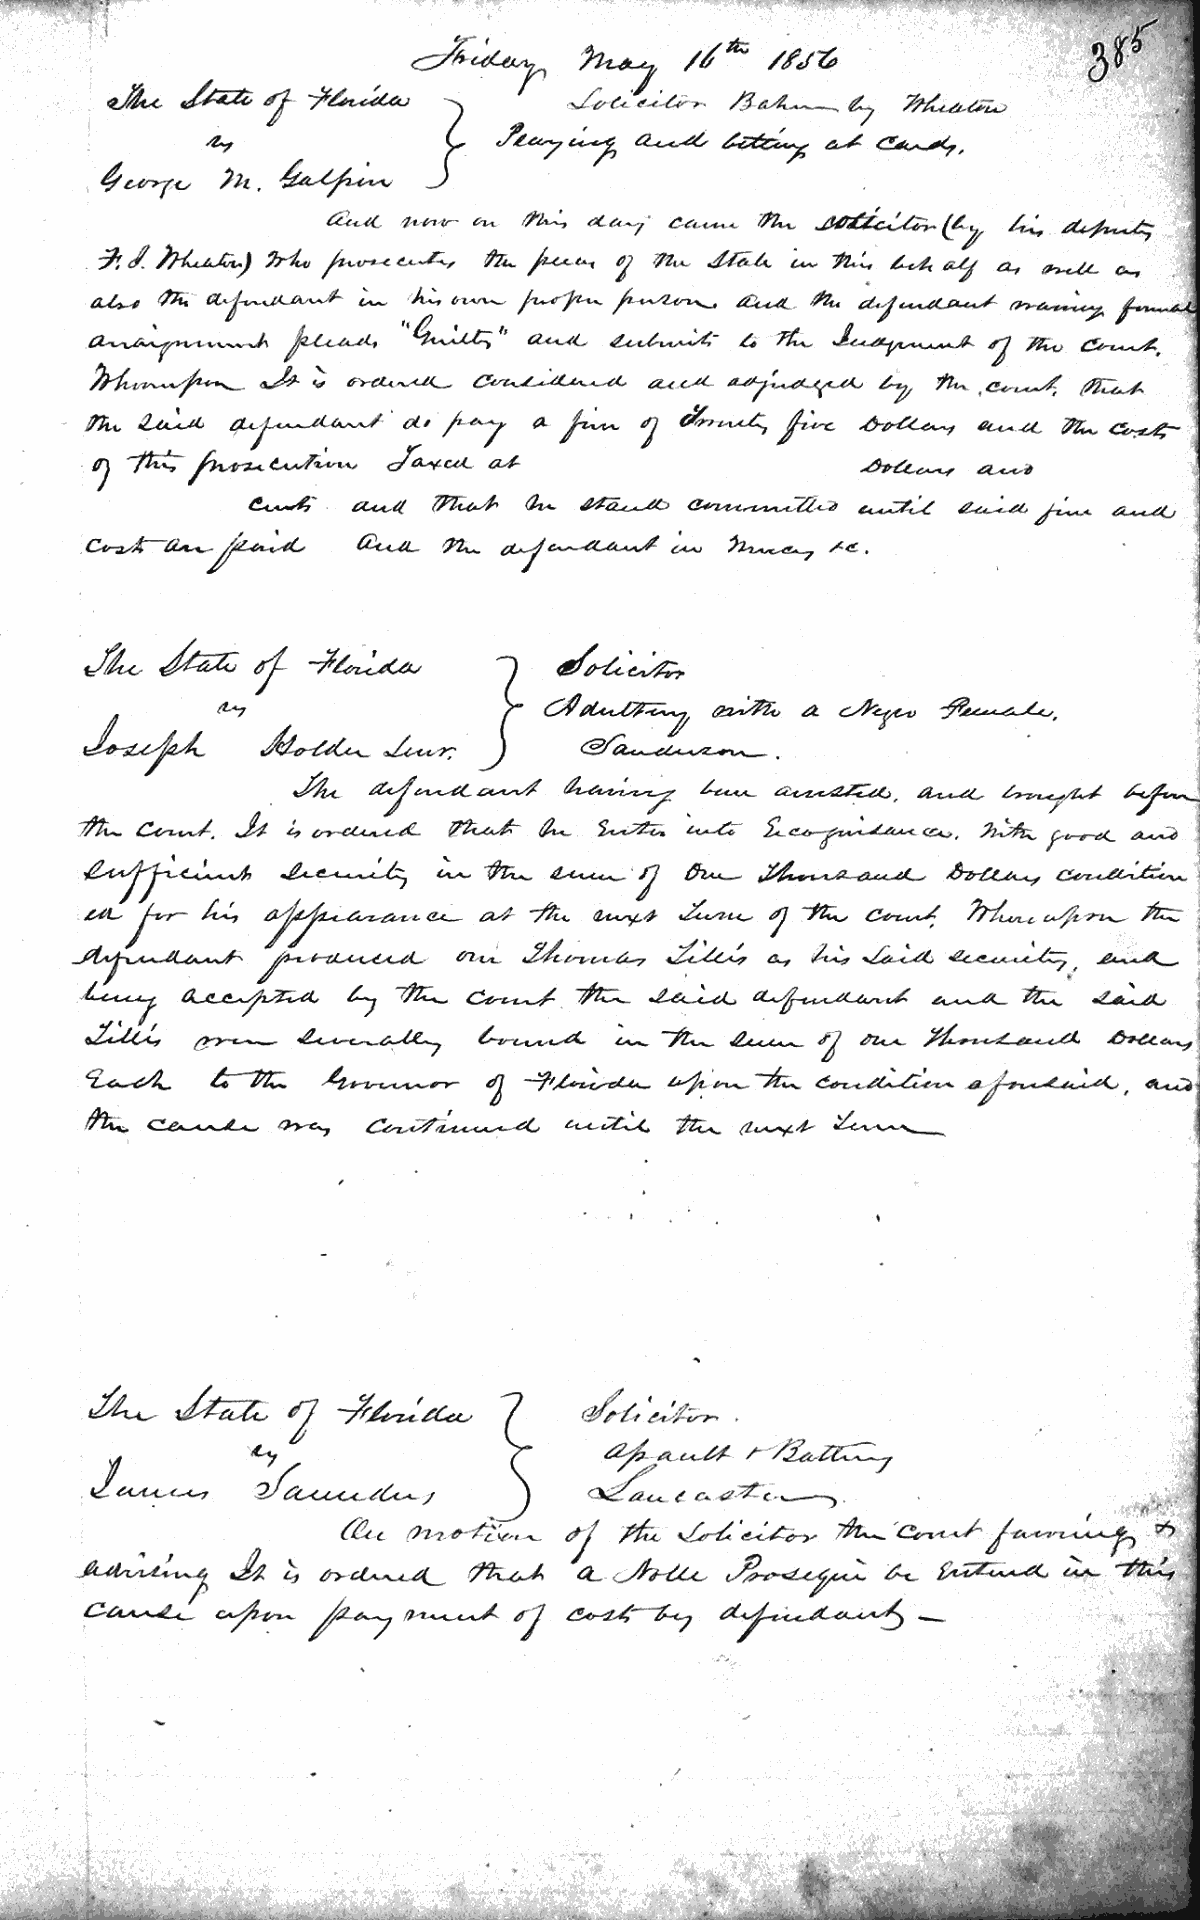 385
Friday May 16th 1856
The State of Florida Solicitor Baker by Wheaton
vs Playing and betting at cards.
George M. Galpin
And now on this day came the solicitor (by his deputy
F. J. Wheaton) who prosecutes the pleas of the State in this behalf as well as
also the defendant in his own proper person. and the defendant waiving formal
arraignment pleads "Guilty" and submits to the Judgment of the court.
Whereupon It is ordered considered and adjudged by the court, that
the said defendant do pay a fine of Twenty five Dollars and the costs
of this prosecution Taxed at Dollars and
cents and that he stand committed until said fine and
costs are paid And the defendant in mercy &c.
The State of Florida Solicitor
vs Adultery with a Negro Female.
Joseph Holder Senr. Sanderson.
The defendant having been arrested, and brought before
the court. It is ordered that he Enter into Recognisance. With good and
sufficient security in the sum of One Thousand Dollars condition
ed for his appearance at the next Term of the court. Whereupon the
defendant produced one Thomas Tillis as his said security, and
being accepted by the court the said defendant and the said
Tillis were severally bound in the sum of one Thousand Dollars
Each to the Governor of Florida upon the condition aforesaid, and
the cause was continued until the next Term
The State of Florida Solicitor.
vs Assault & Battery
James Saunders Lancaster
On motion of the Solicitor the court &
advising It is ordered that a Nolle Prosequi be Entered in this
cause upon payment of costs by defendant —